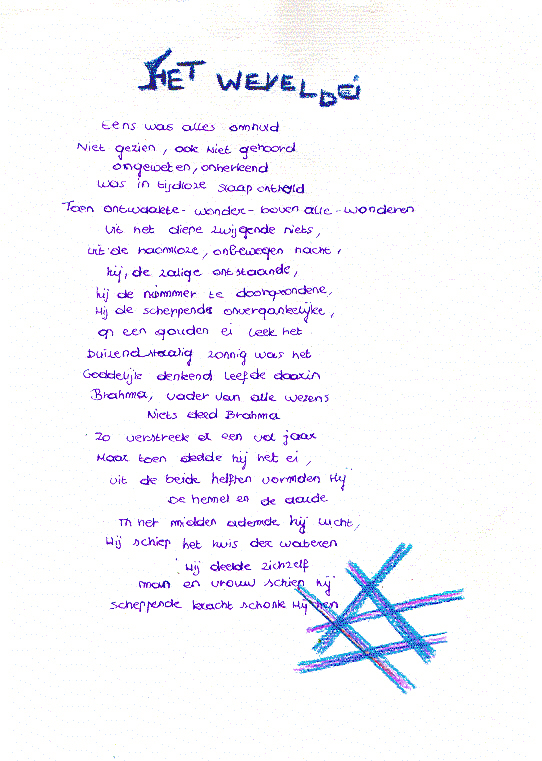 HET WERELDEI
Eens was alles omhuld
Niet gezien, ook niet gehoord
ongeweten, onherkend
Was in tijdloze slaap onthuld
Toen ontwaakte - wonder - boven alle - wonderen
Uit het diepe zwijgende niets,
uit de naamloze, onbewegen nacht,
hij, de zalige ontstaande,
hij de nimmer te doorgrondene,
Hij de scheppende onvergankelijke,
op een gouden ei leek het
Duizendstralig zonnig was het
Goddelijk denkend leefde daarin
Brahma, vader van alle wezens
Niets deed Brahma
Zo verstreek er een vol jaar
Maar toen deelde hij het ei,
uit de beide helften vormden Hij
De hemel en de aarde
In het midden ademde hij lucht,
Hij schiep het huis der wateren
Hij deelde zichzelf
man en vrouw schiep hij
scheppende kracht schonk Hij hen